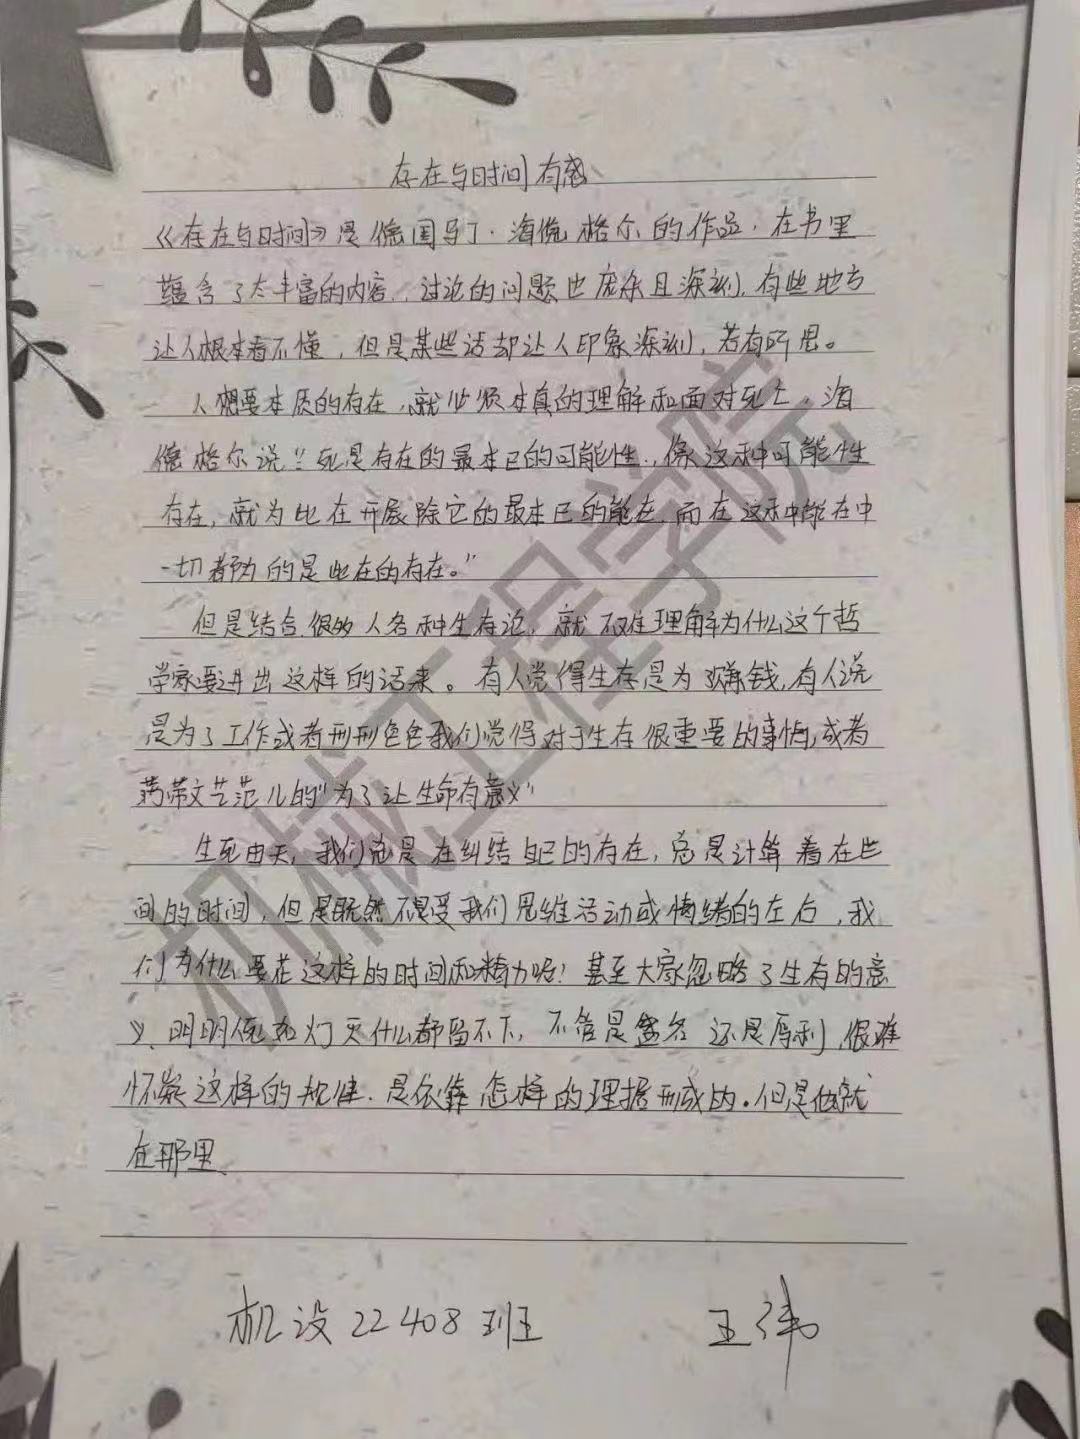 存在与时间有感
《存在与时间》是德国马丁·海德格尔的作品.在书里
蕴含了太丰富的内容,讨论的问题也庞杂且深刻,有些地方
让人根本看不懂,但是某些话却让人印象深刻,若有所思。
人想要本质的存在,就必须本真的理解和面对死亡,海
德格尔说:"死是存在的最本己的可能性,像这种可能性
存在,就为此在开展除它的最本己的能在,而在这种能在中
一切都为的是此在的存在。"
但是结合很多人各种生存论,就不难理解为什么这个哲
学家要讲出这样的话来。有人觉得生存是为了赚钱,有人说
是为了工作或者形形色色我们觉得对于生存很重要的事情,或者
带文艺范儿的"为了让生命有意义"
生死由天,我们总是在纠结自己的存在,总是计算着在世
间的时间,但是既然不是受我们思维活动或情绪的左右,我
们为什么要花这样的时间和精力呢?甚至大家忽略了生存的意
义,明明人死如灯灭什么都留不下,不管是盛名还是厚利,很难
怀疑这样的规律.是依靠怎样的理据形成的.但是他就
在那里
机设22408班 王伟
机械工程学院